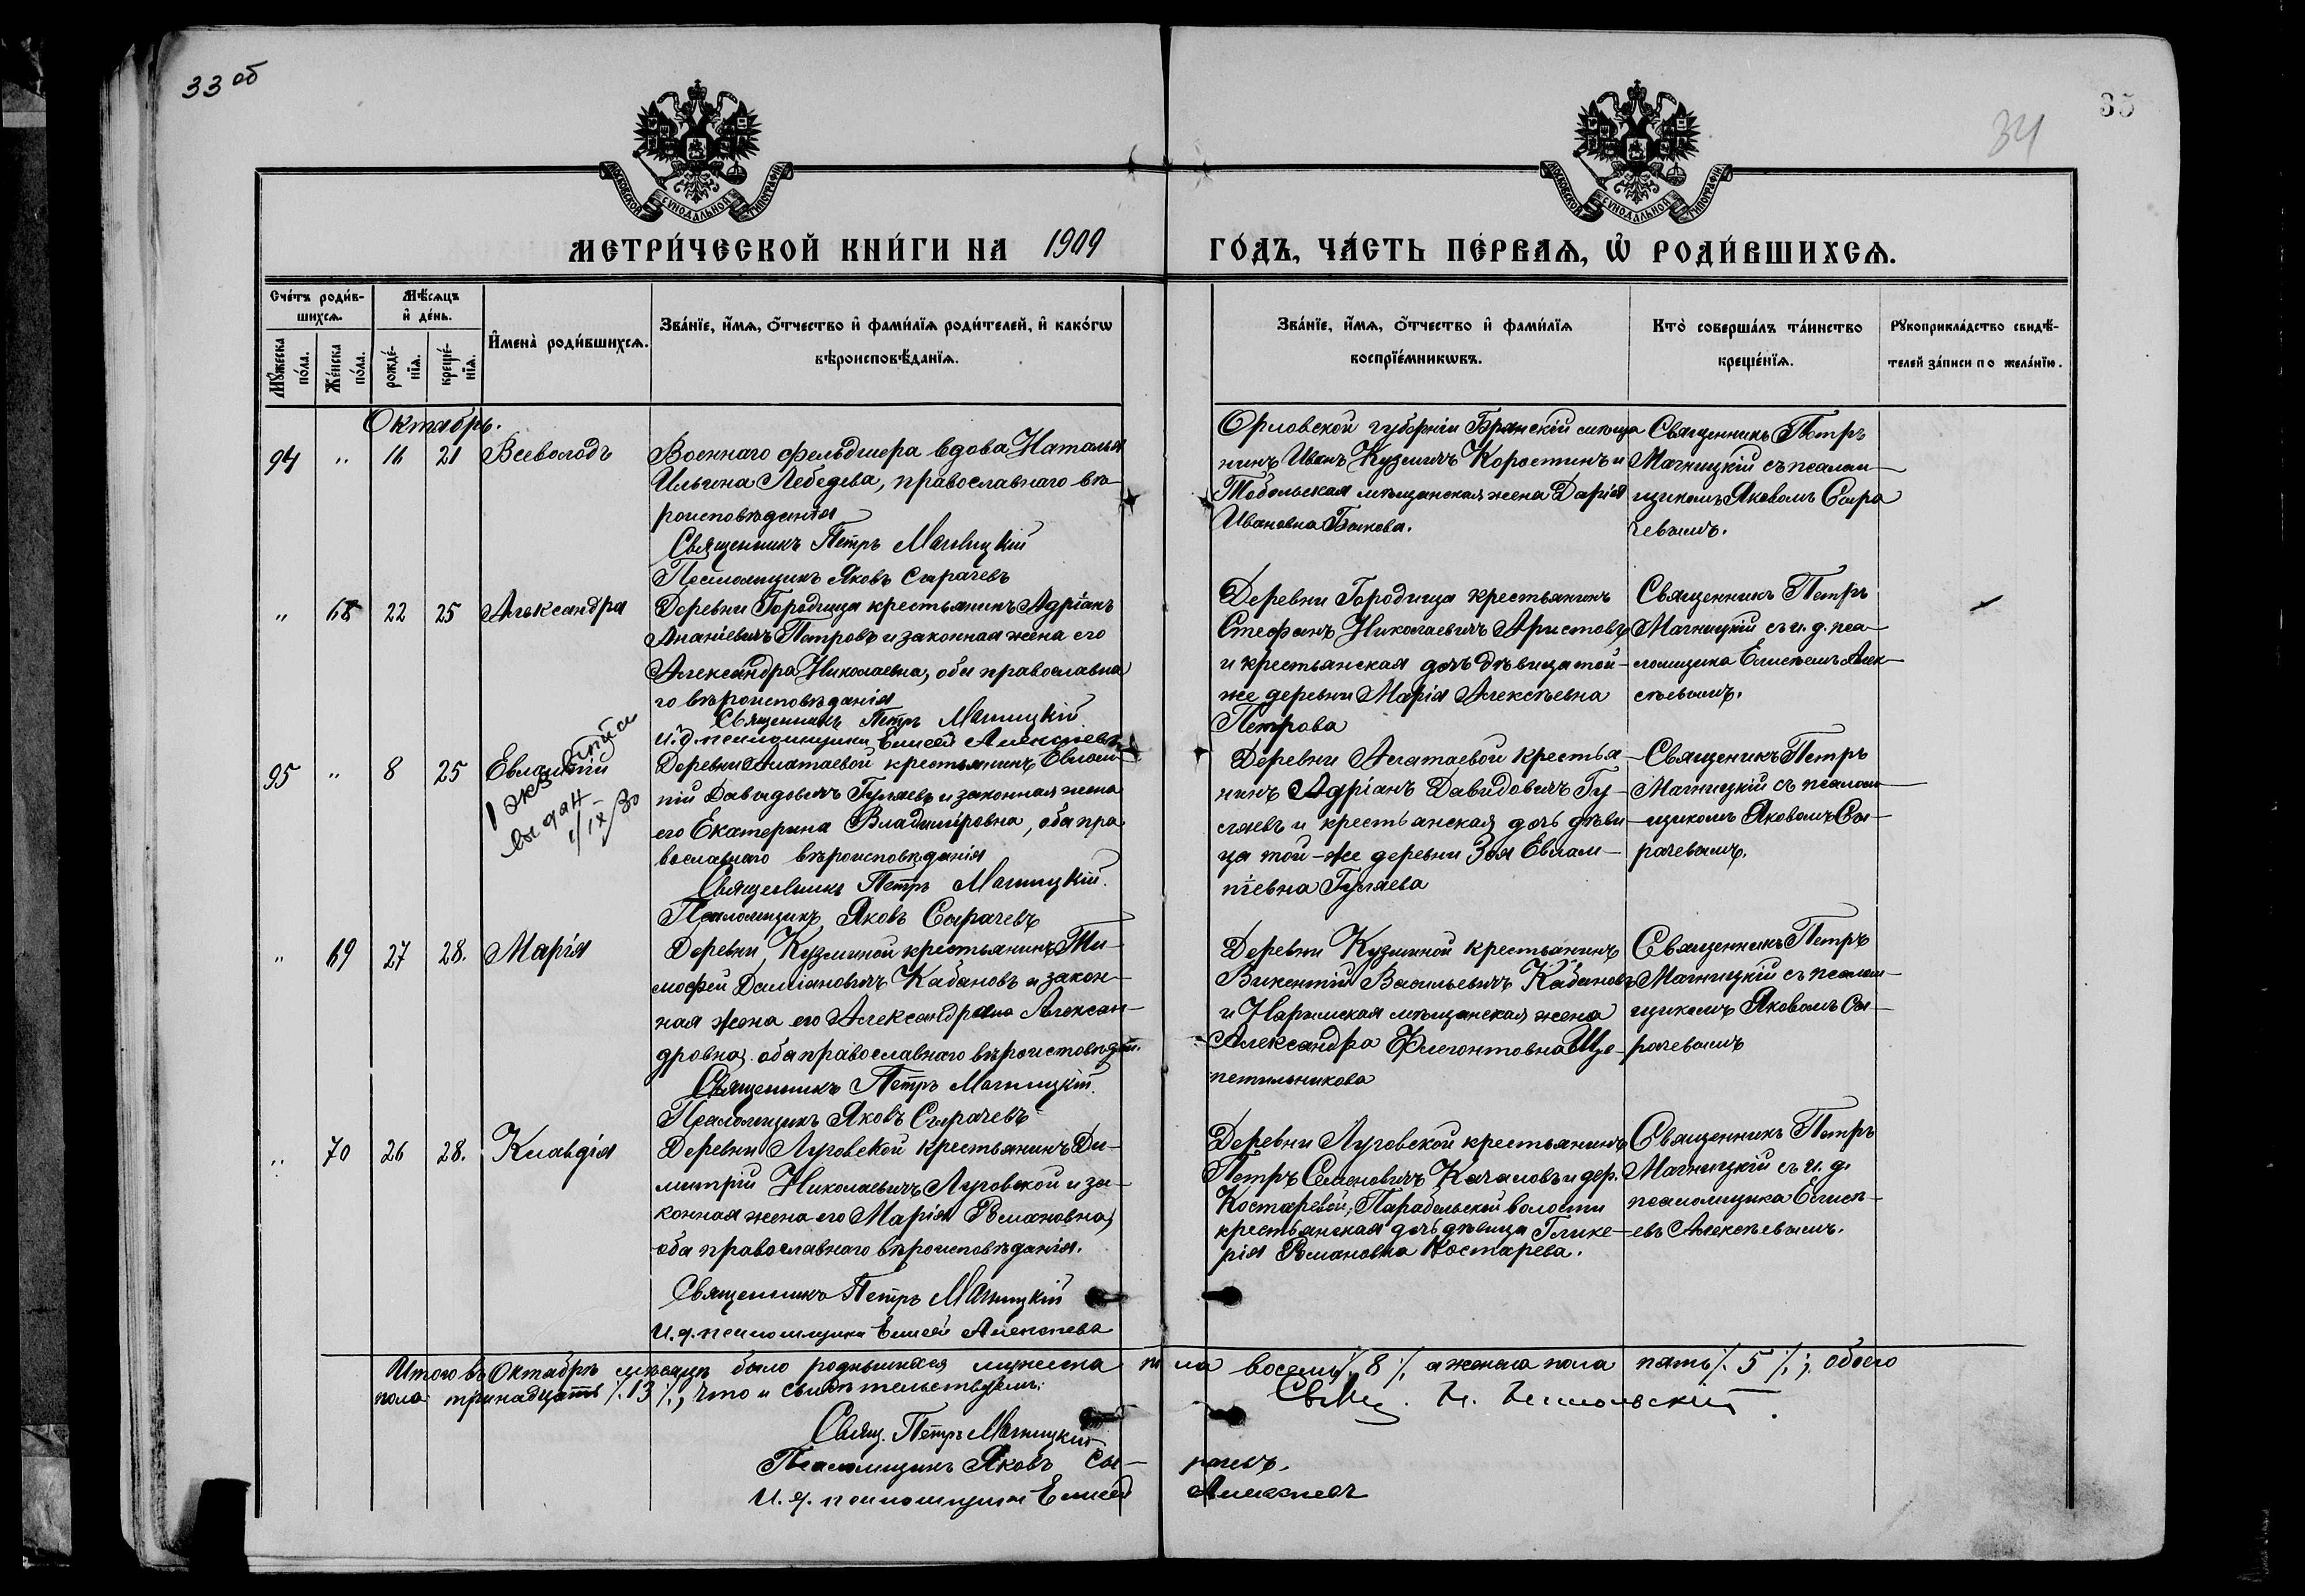 33 об
35
34
МОСКОВСКОЙ СѴНОДАЛЬНОЙ ТИПОГРАФІИ
МОСКОВСКОЙ СѴНОДАЛЬНОЙ ТИПОГРАФІИ
МЕТРИ́ЧЕСКОЙ КНИ́ГИ НА 1909 ГО́ДЪ, ЧА́СТЬ ПЕ́РВАѦ, Ѽ РОДИ́ВШИХСѦ.
Сче́тъ роди́в-
шихсѧ.
Мꙋ́жеска
по́ла.
Же́нска
по́ла.
Мѣ́сѧцъ
и҆ де́нь.
рожде́-
нїѧ.
креще́-
нїѧ.
И҆мена̀ роди́вшихсѧ.
Зва́нїе, и҆́мѧ, ѻ҆́тчество и҆ фами́лїѧ роди́телей, и҆ како́гѡ
вѣроисповѣ́данїѧ.
Зва́нїе, и҆́мѧ, ѻ҆́тчество и҆ фами́лїѧ
воспрїе́мникѡвъ.
Кто̀ соверша́лъ та́инство
креще́нїѧ.
Рꙋкоприкла́дство свидѣ́-
телей за́писи по жела́нїю.
Октябрь.
94 " 16 21 Всеволодъ
Военнаго фельдшера вдова Наталья
Ильина Лебедева, православнаго вѣ-
роисповѣданія
Священникъ Петръ Магницкій
Псаломщикъ Яковъ Сырачевъ
Орловской губерніи Брянскій мѣща
нинъ Иванъ Кузмичъ Коростинъ и
Тобольская мѣщанская жена Дарія
Ивановна Быкова.
Священникъ Петръ
Магницкій съ псалом-
щикомъ Яковомъ Сыра
чевымъ.
" 68 22 25 Александра
Деревни Городища крестьянинъ Адріанъ
Ананіевичъ Петровъ и законная жена его
Александра Николаевна, оба православна
го вѣроисповѣданія
Священникъ Петръ Магницкій
И. д. псаломщика Елисей Алексѣевъ
Деревни Городища крестьянинъ
Стефанъ Николаевичъ Аристовъ
и крестьянская дочь дѣвица той-
же деревни Марія Алексѣевна
Петрова
Священникъ Петръ
Магницкій съ и. д. пса-
ломщика Елисеемъ Алек-
сѣевымъ.
95 " 8 25 Евлампій
1 экз
выдан
1/IX 30
Деревни Алатаевой крестьянинъ Евлам-
пій Давидовичъ Гуляевъ и законная жена
его Екатерина Владиміровна, оба пра
вославнаго вѣроисповѣданія
Священникъ Петръ Магницкій.
Псаломщикъ Яковъ Сырачевъ
Деревни Алатаевой крестья-
нинъ Адріанъ Давидовичъ Гу-
ляевъ и крестьянская дочь дѣви
ца той-же деревни Зоя Евлам-
піевна Гуляева
Священикъ Петръ
Магницкій съ псалом-
щикомъ Яковомъ Сы-
рачевымъ.
" 69 27 28. Марія
Деревни Кузминой крестьянинъ Ти-
мофей Даміановичъ Кабановъ и закон-
ная жена его Александра Алексан-
дровна, оба православнаго вѣроисповѣдан.
Священникъ Петръ Магницкій.
Псаломщикъ Яковъ Сырачевъ
Деревни Кузминой крестьянинъ
Викентій Васильевичъ Кабановъ
и Нарымская мѣщанская жена
Александра Флегонтовна Ще-
петильникова
Священникъ Петръ
Магницкій съ псалом-
щикомъ Яковомъ Сы-
рачевымъ
" 70 26 28. Клавдія
Деревни Луговской крестьянинъ Ди-
митрій Николаевичъ Луговской и за-
конная жена его Марія Романовна,
оба православнаго вѣроисповѣданія.
Священникъ Петръ Магницкій
И. д. псаломщика Елисей Алексѣевъ
Деревни Луговской крестьянинъ
Петръ Семеновичъ Качаловъ и дер.
Костаревой, Парабельской волости
крестьянская дочь дѣвица Глике-
рія Романовна Костарева.
Священникъ Петръ
Магницкій съ и. д.
псаломщика Елисе-
евъ Алексѣевымъ.
Итого въ Октябрѣ мѣсяцѣ было родившихся мужеска пола восемь ⁒ 8 ⁒, а женска пола пять ⁒ 5 ⁒; обоего
пола тринадцать ⁒ 13 ⁒, что и свидѣтельствуемъ:
Свящ. Петръ Магницкій
Псаломщикъ Яковъ Сы-рачевъ.
И. д. псаломщика Елисей Алексѣевъ